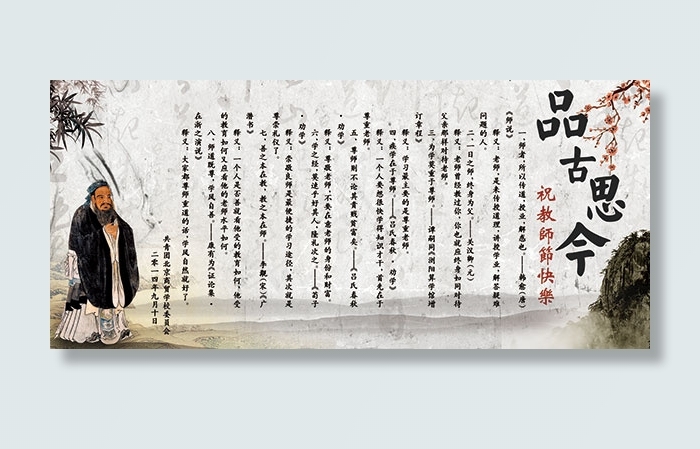 品古思今
祝教師節快樂
一、师者，所以传道、授业、解惑也。——韩愈（唐）
《师说》
释义：老师，是来传授道理，讲授学业，解答疑难
问题的人。
二、一日之师，终身为父。——关汉卿（元）
释义：老师曾经教过你，你也就应终身如同对待
父亲那样对待老师。
三、为学莫重于尊师。——谭嗣同《浏阳算学馆增
订章程》
释义：学习最主要的是尊重老师。
四、疾学在于尊师。——《吕氏春秋·劝学》
释义：一个人要想很快学得知识才干，首先在于
尊重老师。
五、尊师则不论其贵贱贫富矣。——《吕氏春秋
·劝学》
释义：尊敬老师，不要在意老师的身份和财富。
六、学之经，莫速乎好其人，隆礼次之。——《荀子
·劝学》
释义：崇敬良师是最便捷的学习途径，其次就是
尊崇礼仪了。
七、善之本在教，教之本在师。——李觏（宋）《广
潜书》
释义：一个人是否善就看他受的教育如何，他受
的教育如何又应看他的老师水平如何。
八、师道既尊，学风自善。——康有为《证论集·
在浙之演说》
释义：大家都尊师重道的话，学风自然就好了。
共青团北京商贸学校委员会
二零一四年九月十日